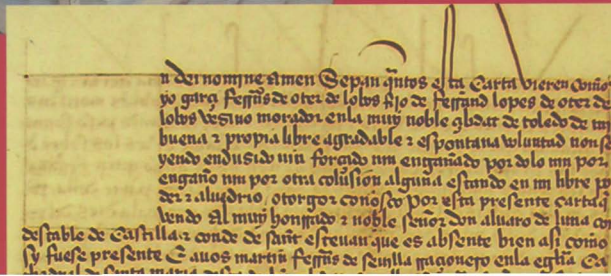 n dei nomine amen Sepan q̃ntos esta carta vieren como
yo garçi ferrns de oter de lobos fijo de ferrand lopes de oter de
lobos vesino morador en la muy noble çibdat de toledo de mi
buena & propia libre agradable & espontana voluntad non se
yendo endusido nin forçado nin engañado por dolo nin por
engaño nin por otra colusion alguna estando en mi libre po
der & aluedrio otorgo & conosco por esta presente carta q̃
vendo al muy honrrado & noble señor don aluaro de luna co
destable de castilla & conde de sant esteuan que es absente bien asi como
sy fuese presente E a vos martin ferrns de seuilla raçionero en la eglia
cathedral de santa maria